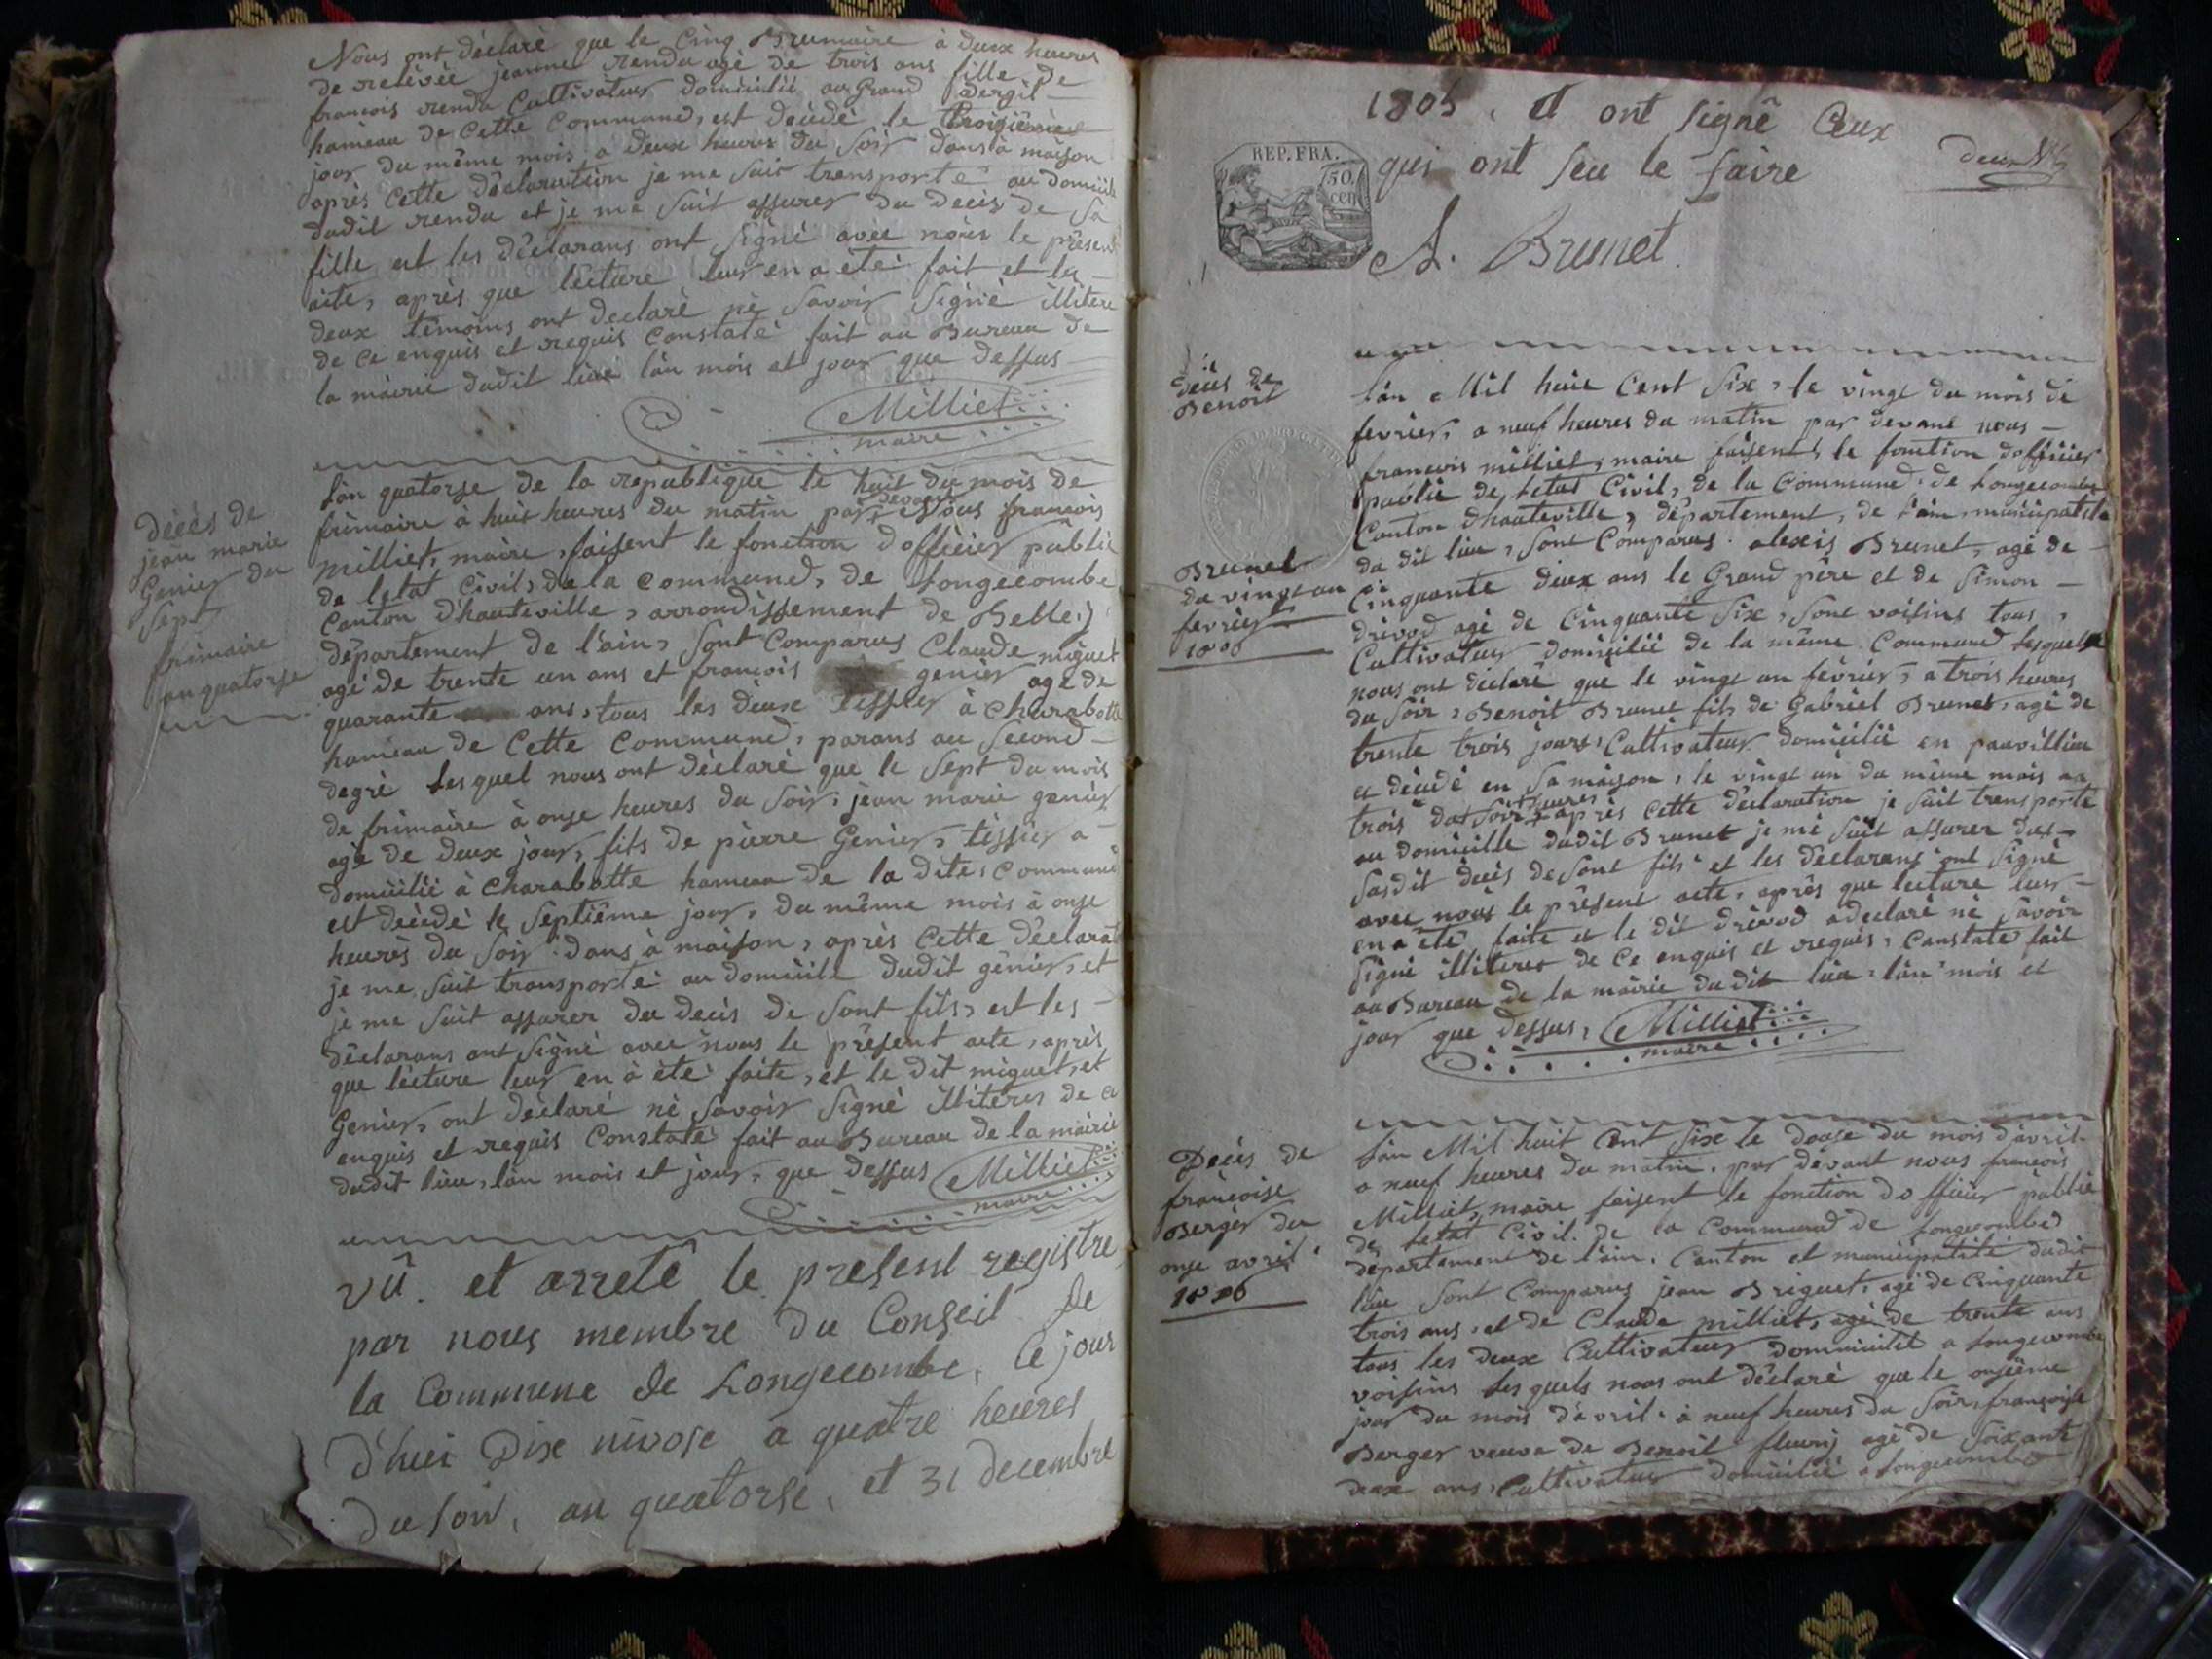 Nous ont déclaré que le Cinq Brumaire à deux heures
de relévée jeanne rendu agé de trois ans fille de
francois rendu Cultivateur domicilié au Grand dergit
hameau de Cette Commune, est décédé le troisième
jour du même mois a deux heures du Soir dans à maison
après Cette déclaration je me suit transporté au domicile
dudit rendu et je me suit assurer du décis de sa
fille et les déclarans ont Signé avec nous le présent
acte, après que lecture leur en a été fait et les
deux témoins ont declaré né Savoir Signé illitere
de Ce enquis et requis Constaté fait au Bureau de
la mairie dudit lieu lân mois et jour que dessus
Milliet
maire
Décès de
jean marie
Genier du
Sept
frimaire
an quatorse
lân quatorse de la republique le huit du mois de
frimaire à huit heures du matin par devant Nous francois
Milliet, maire, faisent le fonction dofficier public
de letat Civil, de la Commune, de Longecombe
Canton d'hauteville, arrondissement de Belleij
département de l'ain, Sont Comparus Claude miguet
agé de trente un ans et francois genier agé de
quarante ans, tous les deux tissier à Charabotte
hameau de Cette Commune, parans au Second
degré Les quel nous ont déclaré que le Sept du mois
de frimaire à onse heures du Soir, jean marie genier
agé de deux jour, fils de pierre Genier, tissier a
domicilié à Charabotte hameau de la dite Commune
est decédé le Septième jour, du même mois à onse
heures du Soir dans à maison, après Cette déclarat
je me suit transporté au domicile dudit génier, et
je me suit assurer du decis de Sont fils, est les
déclarans ont Signé avec nous le présent acte, après
que lecture leur en à été faite, et le dit miguet, et
Genier, ont déclaré né Savoir Signé illiteres de ce
enquis et requis Constaté fait au Bureau de la mairie
dudit lieu, lân mois et jour, que dessus Milliet
maire
vû. et arreté le present registre
par nous membre du Conseil de
la Commune de Longecombe, ce jour
d'hui Dix nivose a quatre heures
du soir, an quatorse, et 31 decembre
1805, et ont signé Ceux
qui ont seu le faire
REP. FRA.
50 cent
A. Brunet
décés de
Benoit
Brunet
du vingt un
fevrier
1806
lân Mil huit Cent Six, le vingt du mois de
fevrier, a neuf heures du matin par devant nous
francois milliet, maire faisent le fonction dofficier
public de letat Civil, de la Commune de Longecombe
Canton d'hauteville, département, de l'ain, municipalité
du dit lieu, Sont Comparus alexis Brunet, agé de
Cinquante deux ans le Grand père et de Simon
drévod agé de Cinquante Six, Sont voisins tous,
Cultivateur domicilié de la même Commune Lesquelle
nous ont declaré que le vingt un février, a trois heures
du Soir, Benoit Brunet fils de Gabriel Brunet, agé de
trente trois jours, Cultivateur domicilié en pauvillieu
a décidé en Sa maison, le vingt un du même mois aa
trois du Soir heures après Cette déclaration je suit transporté
au domicille dudit Brunet je me suit assurer du
Susdit décis de Sont fils et les déclarans ont Signé
avec nous le présent acte, après que lecture leur
en a été faite et le dit drévod adeclaré né Savoir
Signé illiteres de Ce enquis et requis, Constaté fait
au Bureau de la mairie du dit lieu, lân mois et
jour que dessus, Milliet
maire
Décis de
françoise
Berger du
onse avril
1806
lân Mil huit Cent Six le douse du mois d'avril
a neuf heures du matin, par devant nous francois
Milliet, maire faisent le fonction dofficier public
de letat Civil de la Commune de Longecombe
département de l'ain, Canton et municipalité dudit
lieu Sont Comparus jean Briguet, agé de Cinquante
trois ans, et de Claude milliet, agé de trente ans
tous les deux Cultivateur dommicilié a Longecombe
voisins Les quels nous ont déclaré que le onsième
jour du mois d'avril à neuf heures du Soir, françoise
Berger veuve de Benoit fleurij agé de Soixante
deux ans, Cultivateur domicilié a Longecombe